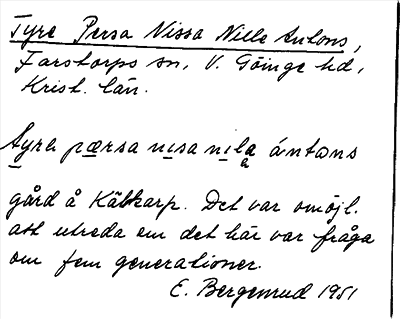 Tyre Persa Nissa Nille Antons,
Farstorps sn, V. Göinge hd,
Krist. län.
tyrə pærsa nisa nila ántɷns
gård å Kälkarp. Det var omöjl.
att utreda om det här var fråga
om fem generationer.
E. Bergenrud 1951